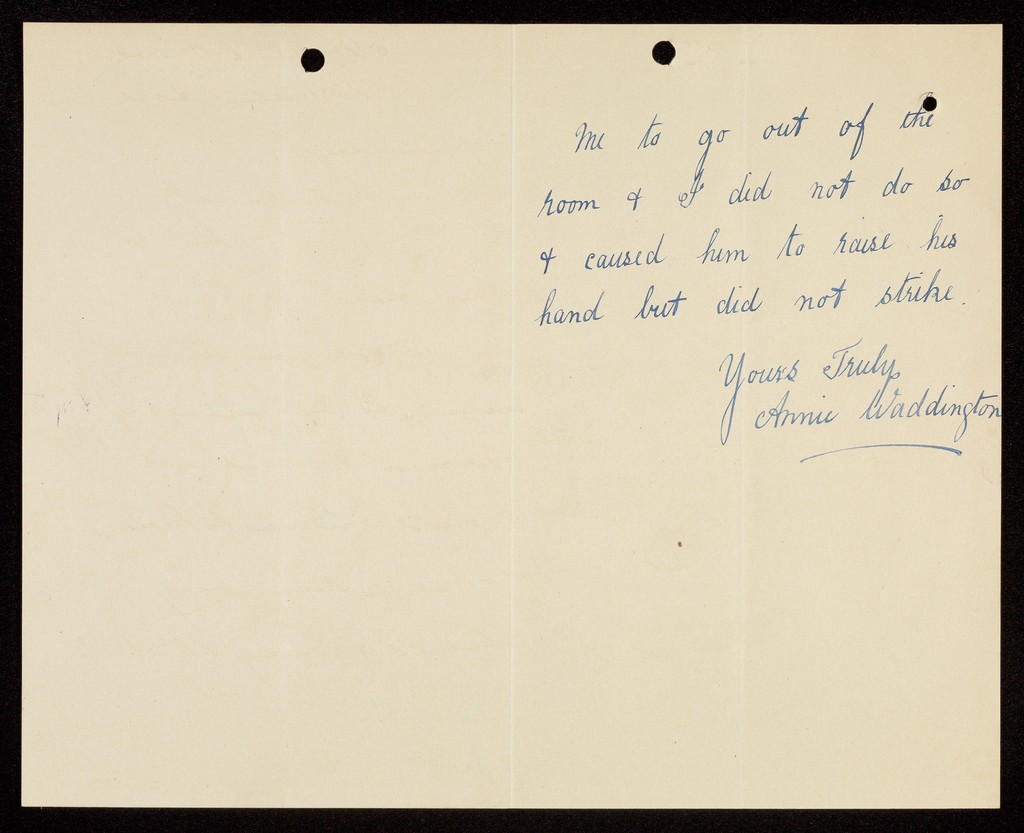 Me to go out of the
room & I did not do so
& caused him to raise his
hand but did not strike.
Yours Truly
Annie Waddington